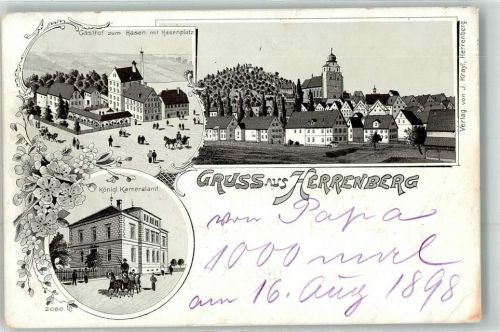 Gasthof zum Hasen mit Hasenplatz.
Verlag von J. Krayl, Herrenberg
GRUSS AUS HERRENBERG
Königl. Kameralamt.
von Papa
1000 mal
am 16. Aug 1898
2080.